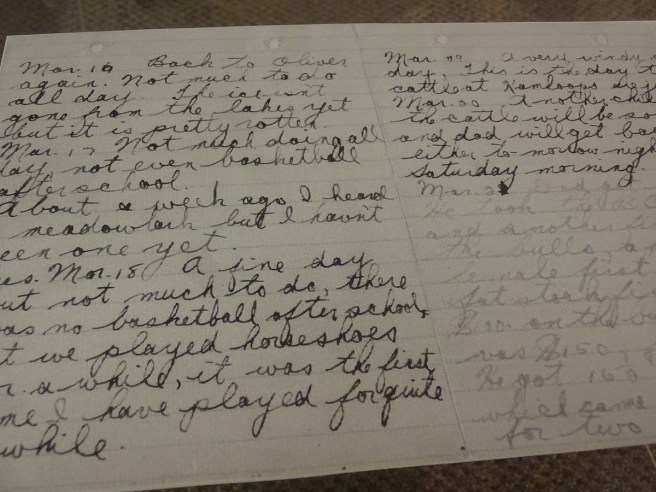 Mar. 16 Back to Oliver
again. Not much to do
all day. The ice isn't
gone from the lakes yet
but it is pretty rotten.
Mar. 17 Not much doing all
day, not even basketball
after school.
About a week ago I heard
meadowlark but I havn't
een one yet.
es. Mar. 18. A fine day
ut not much to do, there
as no basketball after school,
t we played horseshoes
r a while, it was the first
me I have played for quite
while.
Mar. A very windy
day. This is the day t
cattle at Kamloops
Mar. Another
the cattle will be so
and dad will get ba
either to-morrow nigh
Saturday morning.
Mar. Dad
He took the
and another fi
the bulls,
female first
fat stock fi
$190. on the bu
was $150,
He got 163
which came
for two